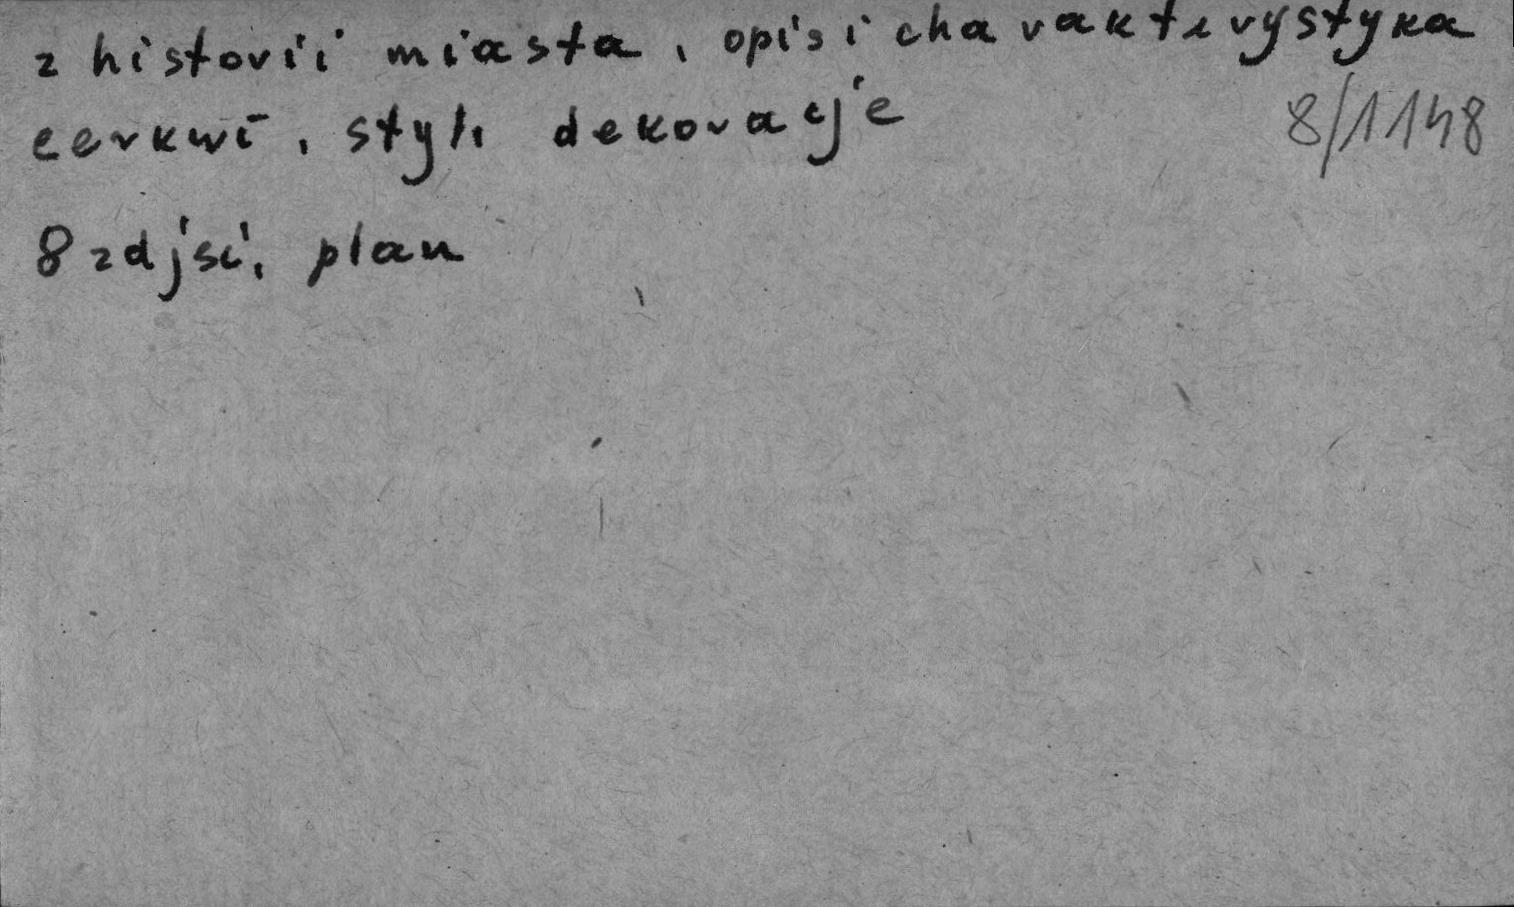 z historii miasta, opis i charakterystyka
cerkwi, styl, dekoracje
8/1148
8 zdjęć, plan